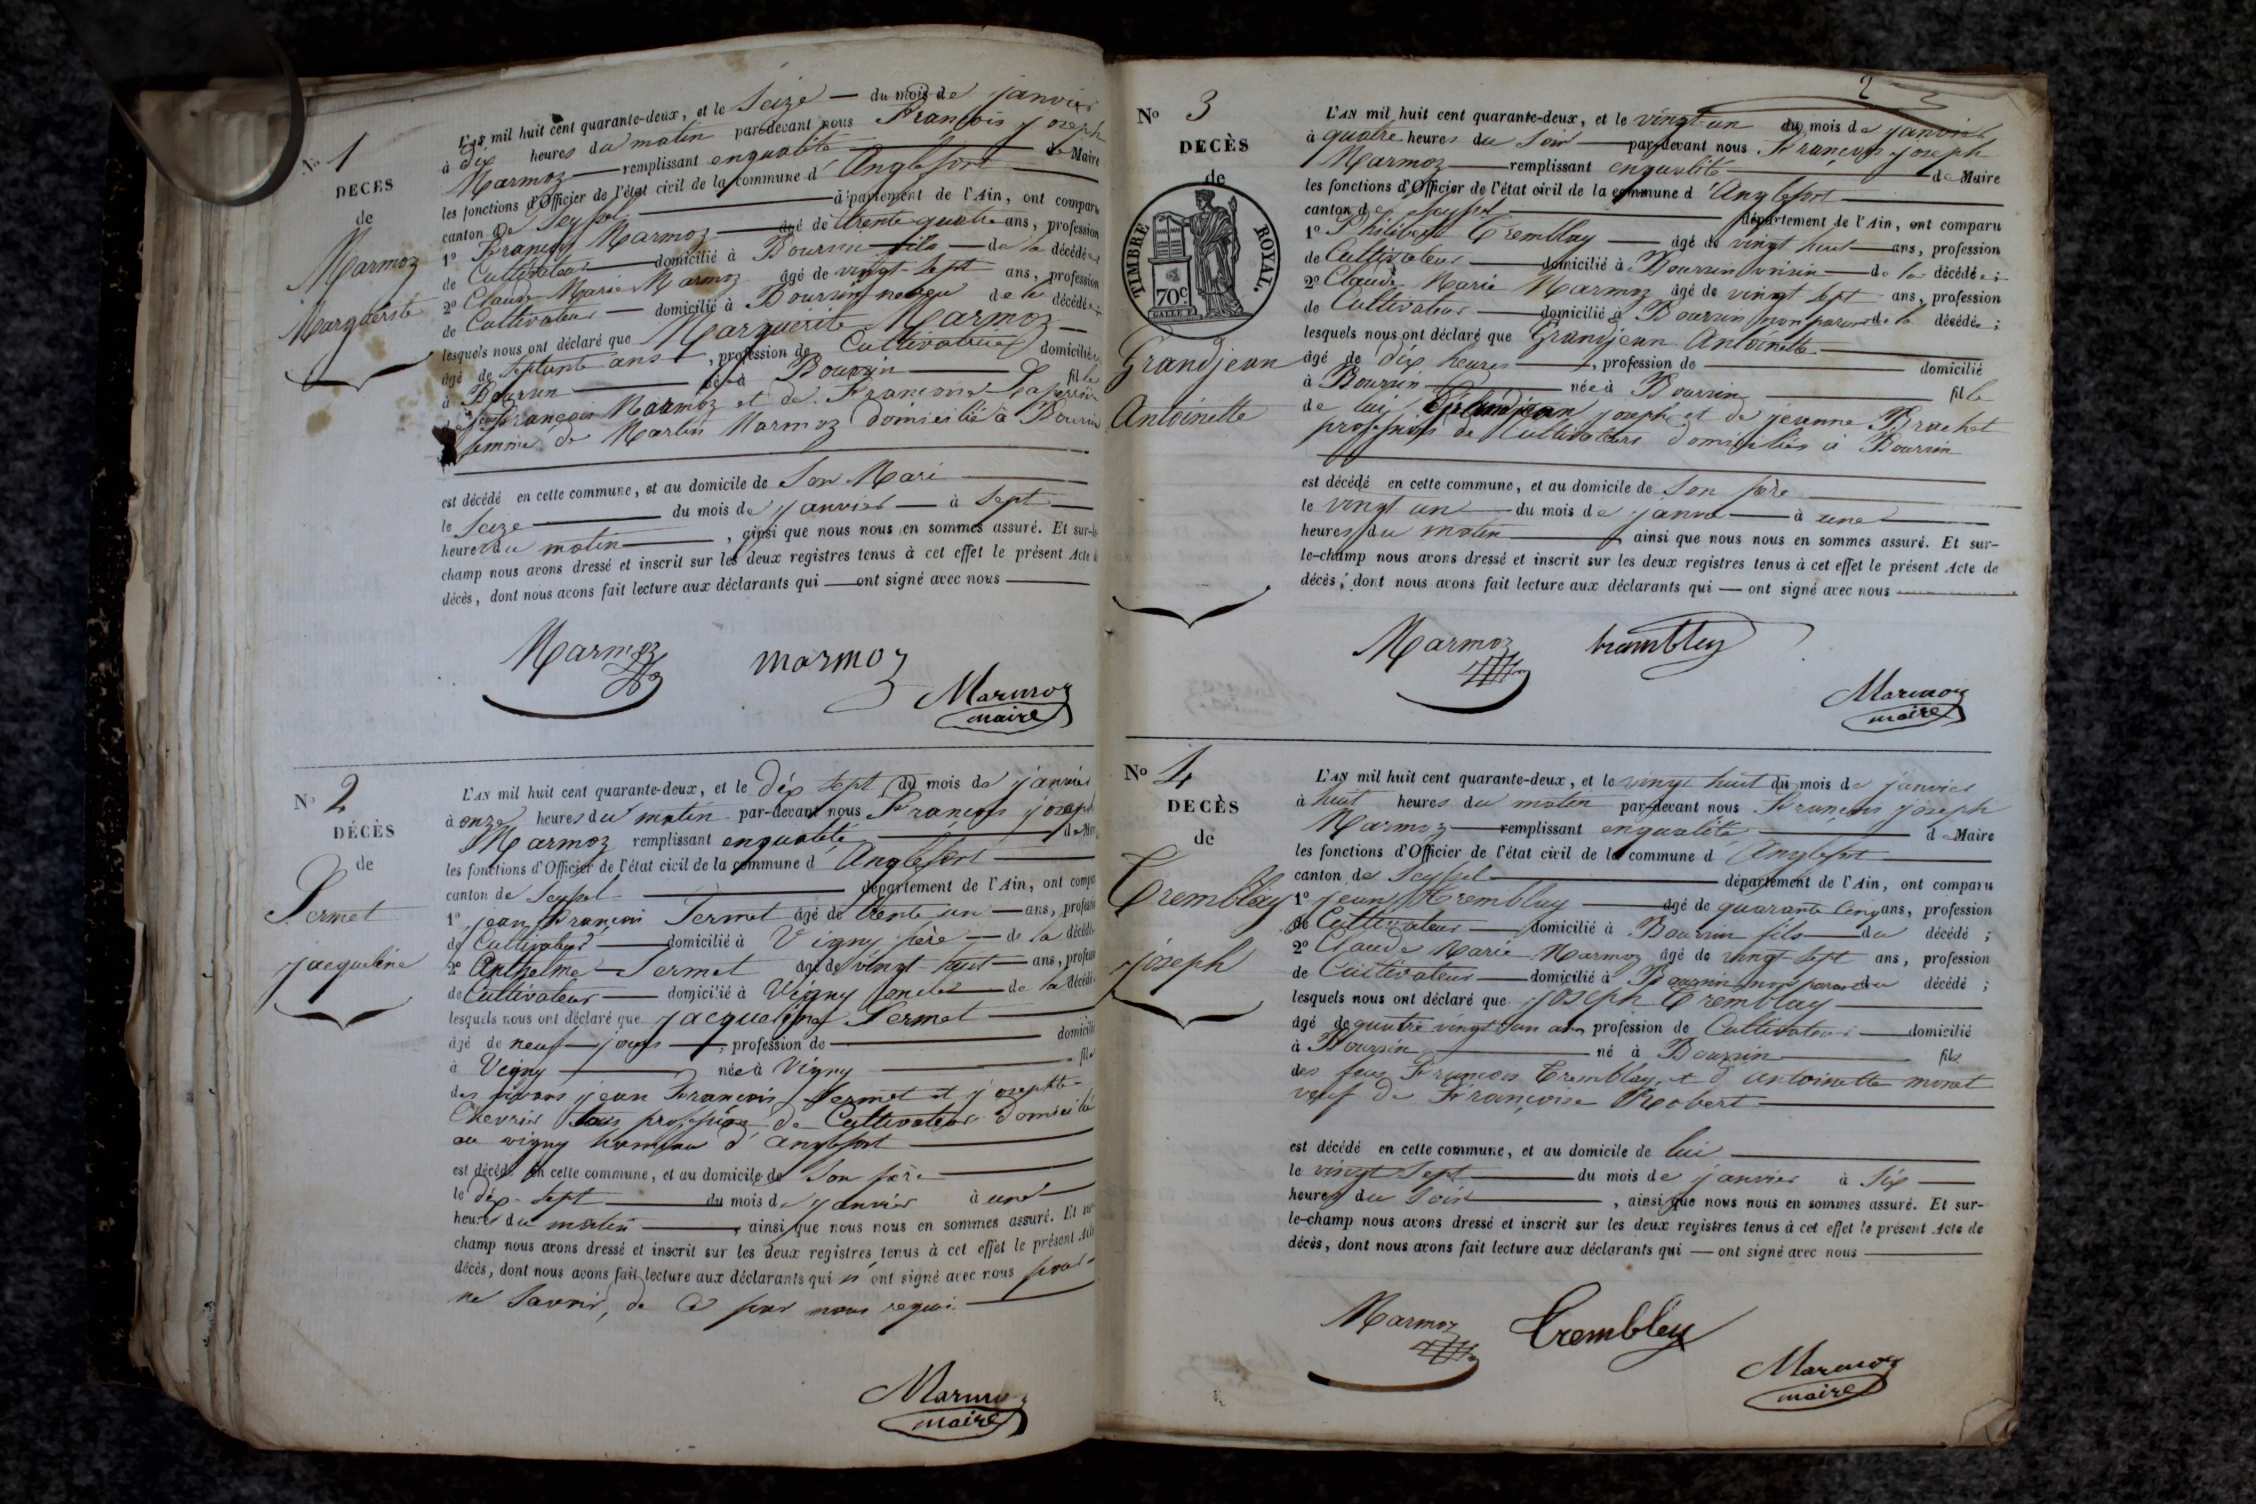 No 1
DÉCÈS
de
Marmoz
Marguerite
L'AN mil huit cent quarante-deux, et le Seize du mois de janvier
à dix heures du matin par-devant nous François joseph
Marmoz remplissant enqualité de Maire
les fonctions d'Officier de l'état civil de la commune d'Anglefort
canton de Seyssel département de l'Ain, ont comparu
1º François Marmoz âgé de trente quatre ans, profession
de Cultivateur domicilié à Boursin fils de la décédée
2º Claude Marie Marmoz âgé de vingt-Sept ans, profession
de Cultivateur domicilié à Boursin neveu de la décédée
lesquels nous ont déclaré que Marguerite Marmoz
âgé de septante ans, profession de Cultivatrice domiciliée
à Boursin née à Boursin fille
de feu François Marmoz et de Françoise
femme de Martin Marmoz domiciliée à Boursin
est décédé en cette commune, et au domicile de Son Mari
le Seize du mois de janvier à Sept
heures du matin, ainsi que nous nous en sommes assuré. Et sur-le-
champ nous avons dressé et inscrit sur les deux registres tenus à cet effet le présent Acte de
décès, dont nous avons fait lecture aux déclarants qui — ont signé avec nous
Marmoz marmoz
Marmoz
maire
No 2
DÉCÈS
de
Sermet
jacqueline
L'AN mil huit cent quarante-deux, et le dix sept du mois de janvier
à onze heures du matin par-devant nous François joseph
Marmoz remplissant enqualité de Maire
les fonctions d'Officier de l'état civil de la commune d'Anglefort
canton de Seyssel département de l'Ain, ont comparu
1º jean François Sermet âgé de trente un ans, profession
de Cultivateur domicilié à Vigny père de la décédée
2º Anthelme Sermet âgé de vingt huit ans, profession
de Cultivateur domicilié à Vigny oncle de la décédée
lesquels nous ont déclaré que jacqueline Sermet
âgé de neuf jours, profession de domicilié
à Vigny née à Vigny fille
des vivans jean François Sermet et josephte
Chevrier tous profession de Cultivateur domicilié
au vigny hameau d'anglefort
est décédé en cette commune, et au domicile de Son père
le dix-Sept du mois de janvier à une
heures du matin, ainsi que nous nous en sommes assuré. Et sur-
champ nous avons dressé et inscrit sur les deux registres tenus à cet effet le présent Acte
décès, dont nous avons fait lecture aux déclarants qui n'ont signé avec nous pour
ne Savoir, de ce par nous requi
Marmoz
maire
2
No 3
DÉCÈS
de
TIMBRE ROYAL.
70c
Grandjean
Antoinette
L'AN mil huit cent quarante-deux, et le vingt-un du mois de janvier
à quatre heures du Soir par-devant nous François joseph
Marmoz remplissant enqualité de Maire
les fonctions d'Officier de l'état civil de la commune d'Anglefort
canton de Seyssel département de l'Ain, ont comparu
1º Philibert Tremblay âgé de vingt huit ans, profession
de Cultivateur domicilié à Boursin voisin de la décédée;
2º Claude Marie Marmoz âgé de vingt Sept ans, profession
de Cultivateur domicilié à Boursin non parent de la décédée;
lesquels nous ont déclaré que Grandjean Antoinette
âgé de dix heures, profession de domicilié
à Boursin née à Boursin fille
de lui Grandjean joseph et de jeanne Brachet
profession de Cultivateurs domiciliés à Boursin
est décédé en cette commune, et au domicile de Son père
le vingt un du mois de janvier à une
heures du matin ainsi que nous nous en sommes assuré. Et sur-
le-champ nous avons dressé et inscrit sur les deux registres tenus à cet effet le présent Acte de
décès, dont nous avons fait lecture aux déclarants qui — ont signé avec nous
Marmoz trambley
Marmoz
maire
No 4
DÉCÈS
de
Tremblay
joseph
L'AN mil huit cent quarante-deux, et le vingt huit du mois de janvier
à huit heures du matin par-devant nous François joseph
Marmoz remplissant enqualité de Maire
les fonctions d'Officier de l'état civil de la commune d'Anglefort
canton de Seyssel département de l'Ain, ont comparu
1º jean Tremblay âgé de quarante Cinq ans, profession
de Cultivateur domicilié à Boursin fils du décédé;
2º Claude Marie Marmoz âgé de vingt Sept ans, profession
de Cultivateur domicilié à Boursin non parent du décédé;
lesquels nous ont déclaré que joseph Tremblay
âgé de quatre vingt un an profession de Cultivateur domicilié
à Boursin né à Boursin fils
des feus François Tremblay et d'antoinette monet
veuf de Françoise Robert
est décédé en cette commune, et au domicile de lui
le vingt Sept du mois de janvier à Six
heures du Soir, ainsi que nous nous en sommes assuré. Et sur-
le-champ nous avons dressé et inscrit sur les deux registres tenus à cet effet le présent Acte de
décès, dont nous avons fait lecture aux déclarants qui — ont signé avec nous
Marmoz Trembley
Marmoz
maire